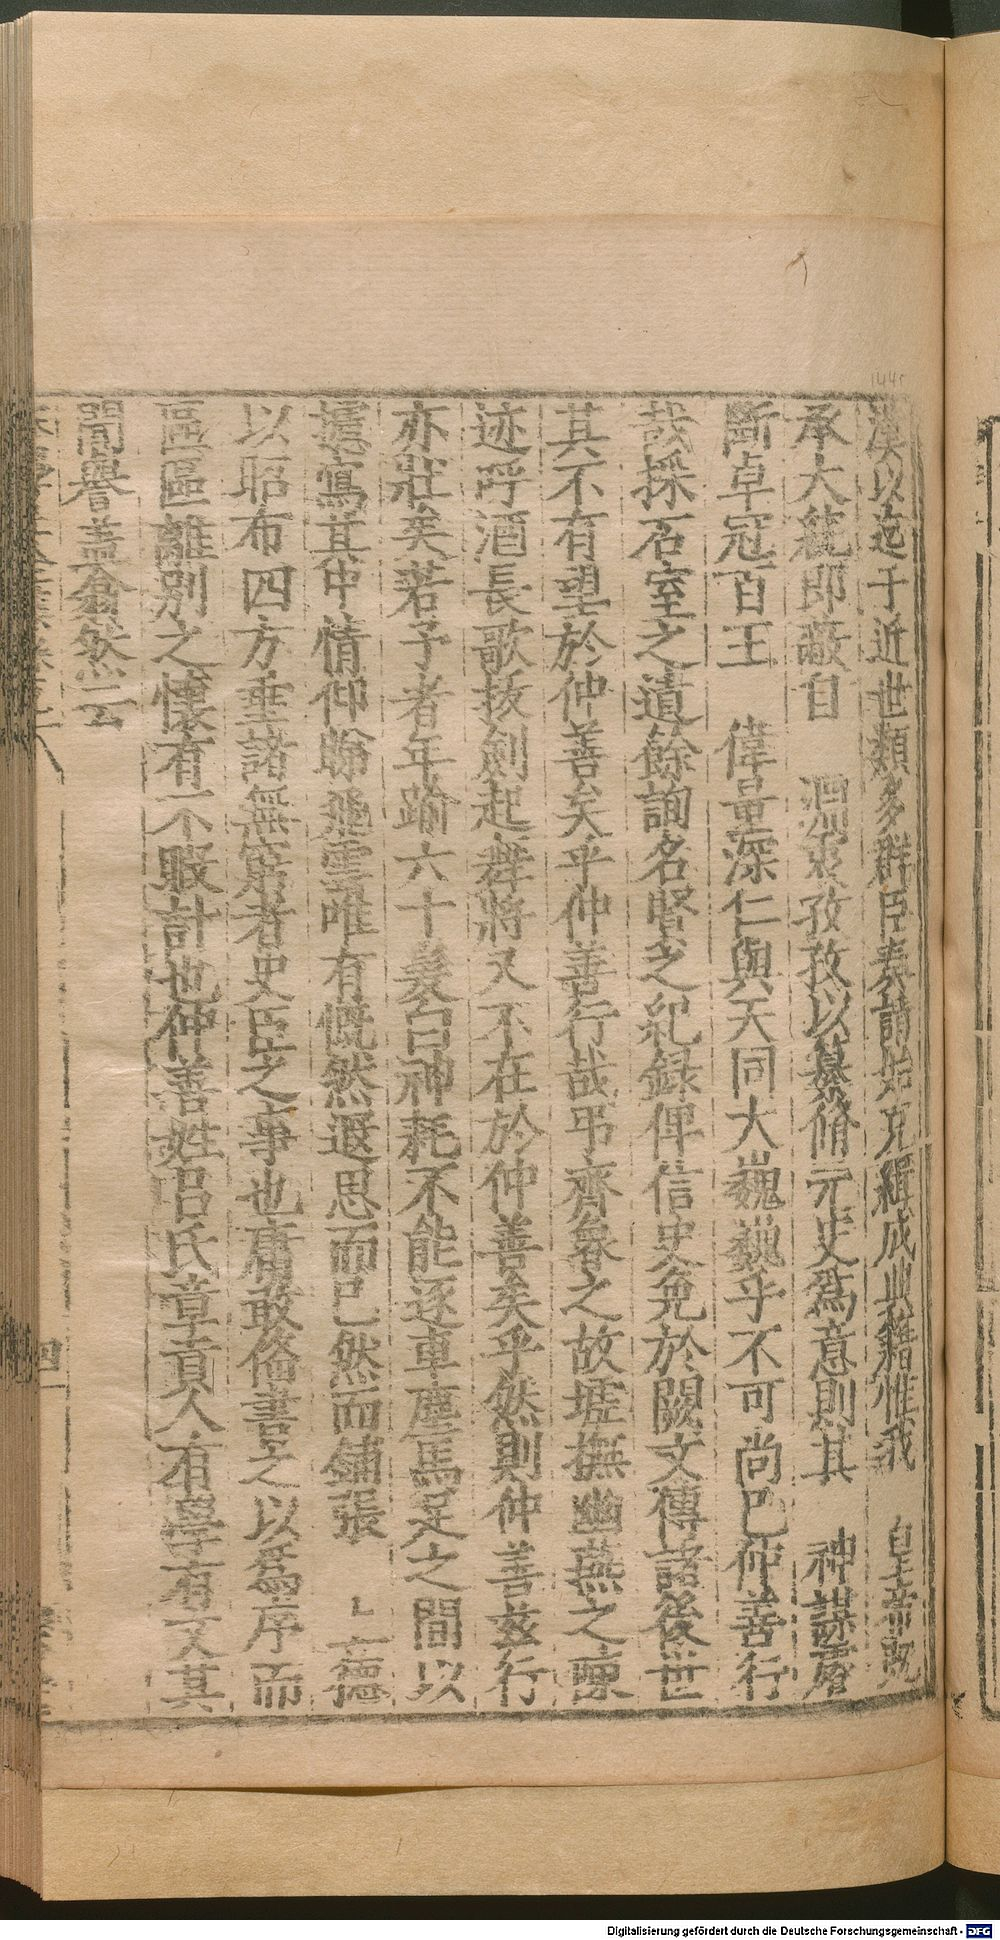 漢以迄于近世類多群臣奏請始克緝成典籍惟我　皇帝既
承大統即蔽自　淵衷孜孜以纂脩元史爲意則其　神謀睿
斷卓冠百王　偉量深仁與天同大巍巍乎不可尚已仲善行
哉採石室之遺餘詢名賢之紀録俾信史免於闕文傳諸後世
其不有望於仲善矣乎仲善行哉弔齊魯之故墟撫幽燕之陳
迹呼酒長歌拔劍起舞將又不在於仲善矣乎然則仲善茲行
亦壯矣若予者年踰六十義曰神耗不能逐車塵馬足之間以
攄寫其中情仰睇飛雲唯有慨然遐思而已然而鋪張　上德
以昭布四方垂諸無窮者史臣之事也庸敢俻書之以爲序而
區區離別之懷有不暇計也仲善姓呂氏章貢人有學有文其
聞譽盖翕然云
四
Digitalisierung gefördert durch die Deutsche Forschungsgemeinschaft - DFG